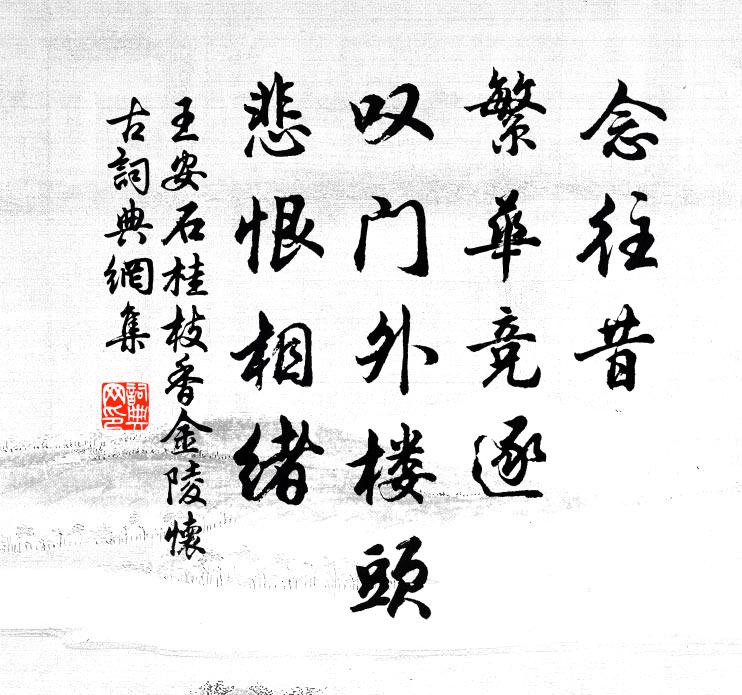 念往昔
繁華竞逐
叹门外楼頭
悲恨相緒
王安石桂枝香金陵懷
古詞典網集
詞典
网印